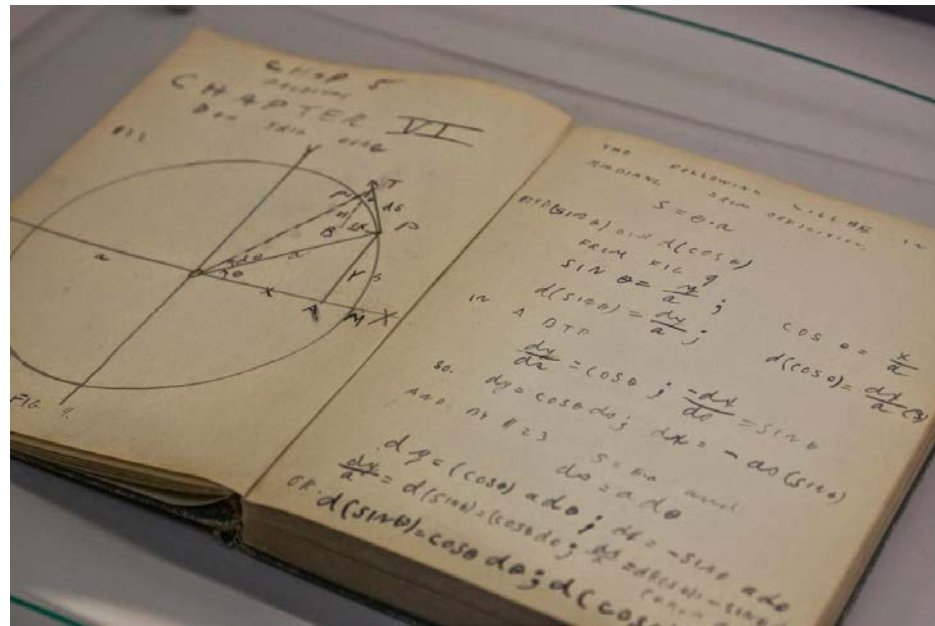 CHAP 5
CHAPTER VI
Y
T
dS
P
B
a
a
θ
Y
S
X
A
M
X
FIG 9.
THE FOLLOWING WILL BE IN
RADIANS FROM DEFINITION
S = θ·a
d(SIN θ) d(COS θ)
FROM FIG 9
SIN θ = y/a ; COS θ = x/a
d(SIN θ) = dy/a ; d(COS θ) = dx/a
IN A BTP
= COS θ ; = SIN θ
SO. dy = COS θ ds ; dx = - ds (SIN θ)
AND BY
ds = a dθ
dy = (COS θ) a dθ ; dx = - SIN θ a dθ
dy/a = d(SIN θ) = (COS θ dθ ;
OR d(SIN θ) = COS θ dθ ; d(COS